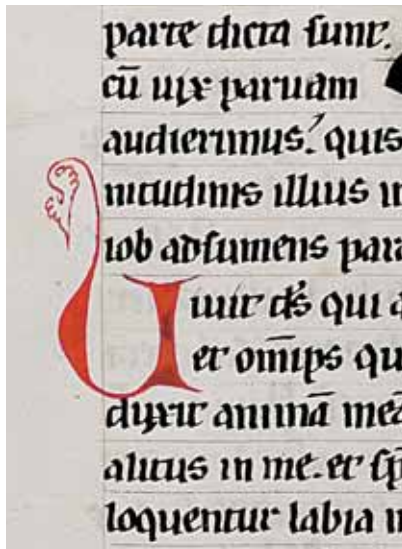 parte dicta sunt.
cū uix paruam
audierimus. quis
nitudinis illius
iob adsumens
Uiuit ds̄ qui
et om̄ips
duxit animā
alitus in me. et
loquentur labia